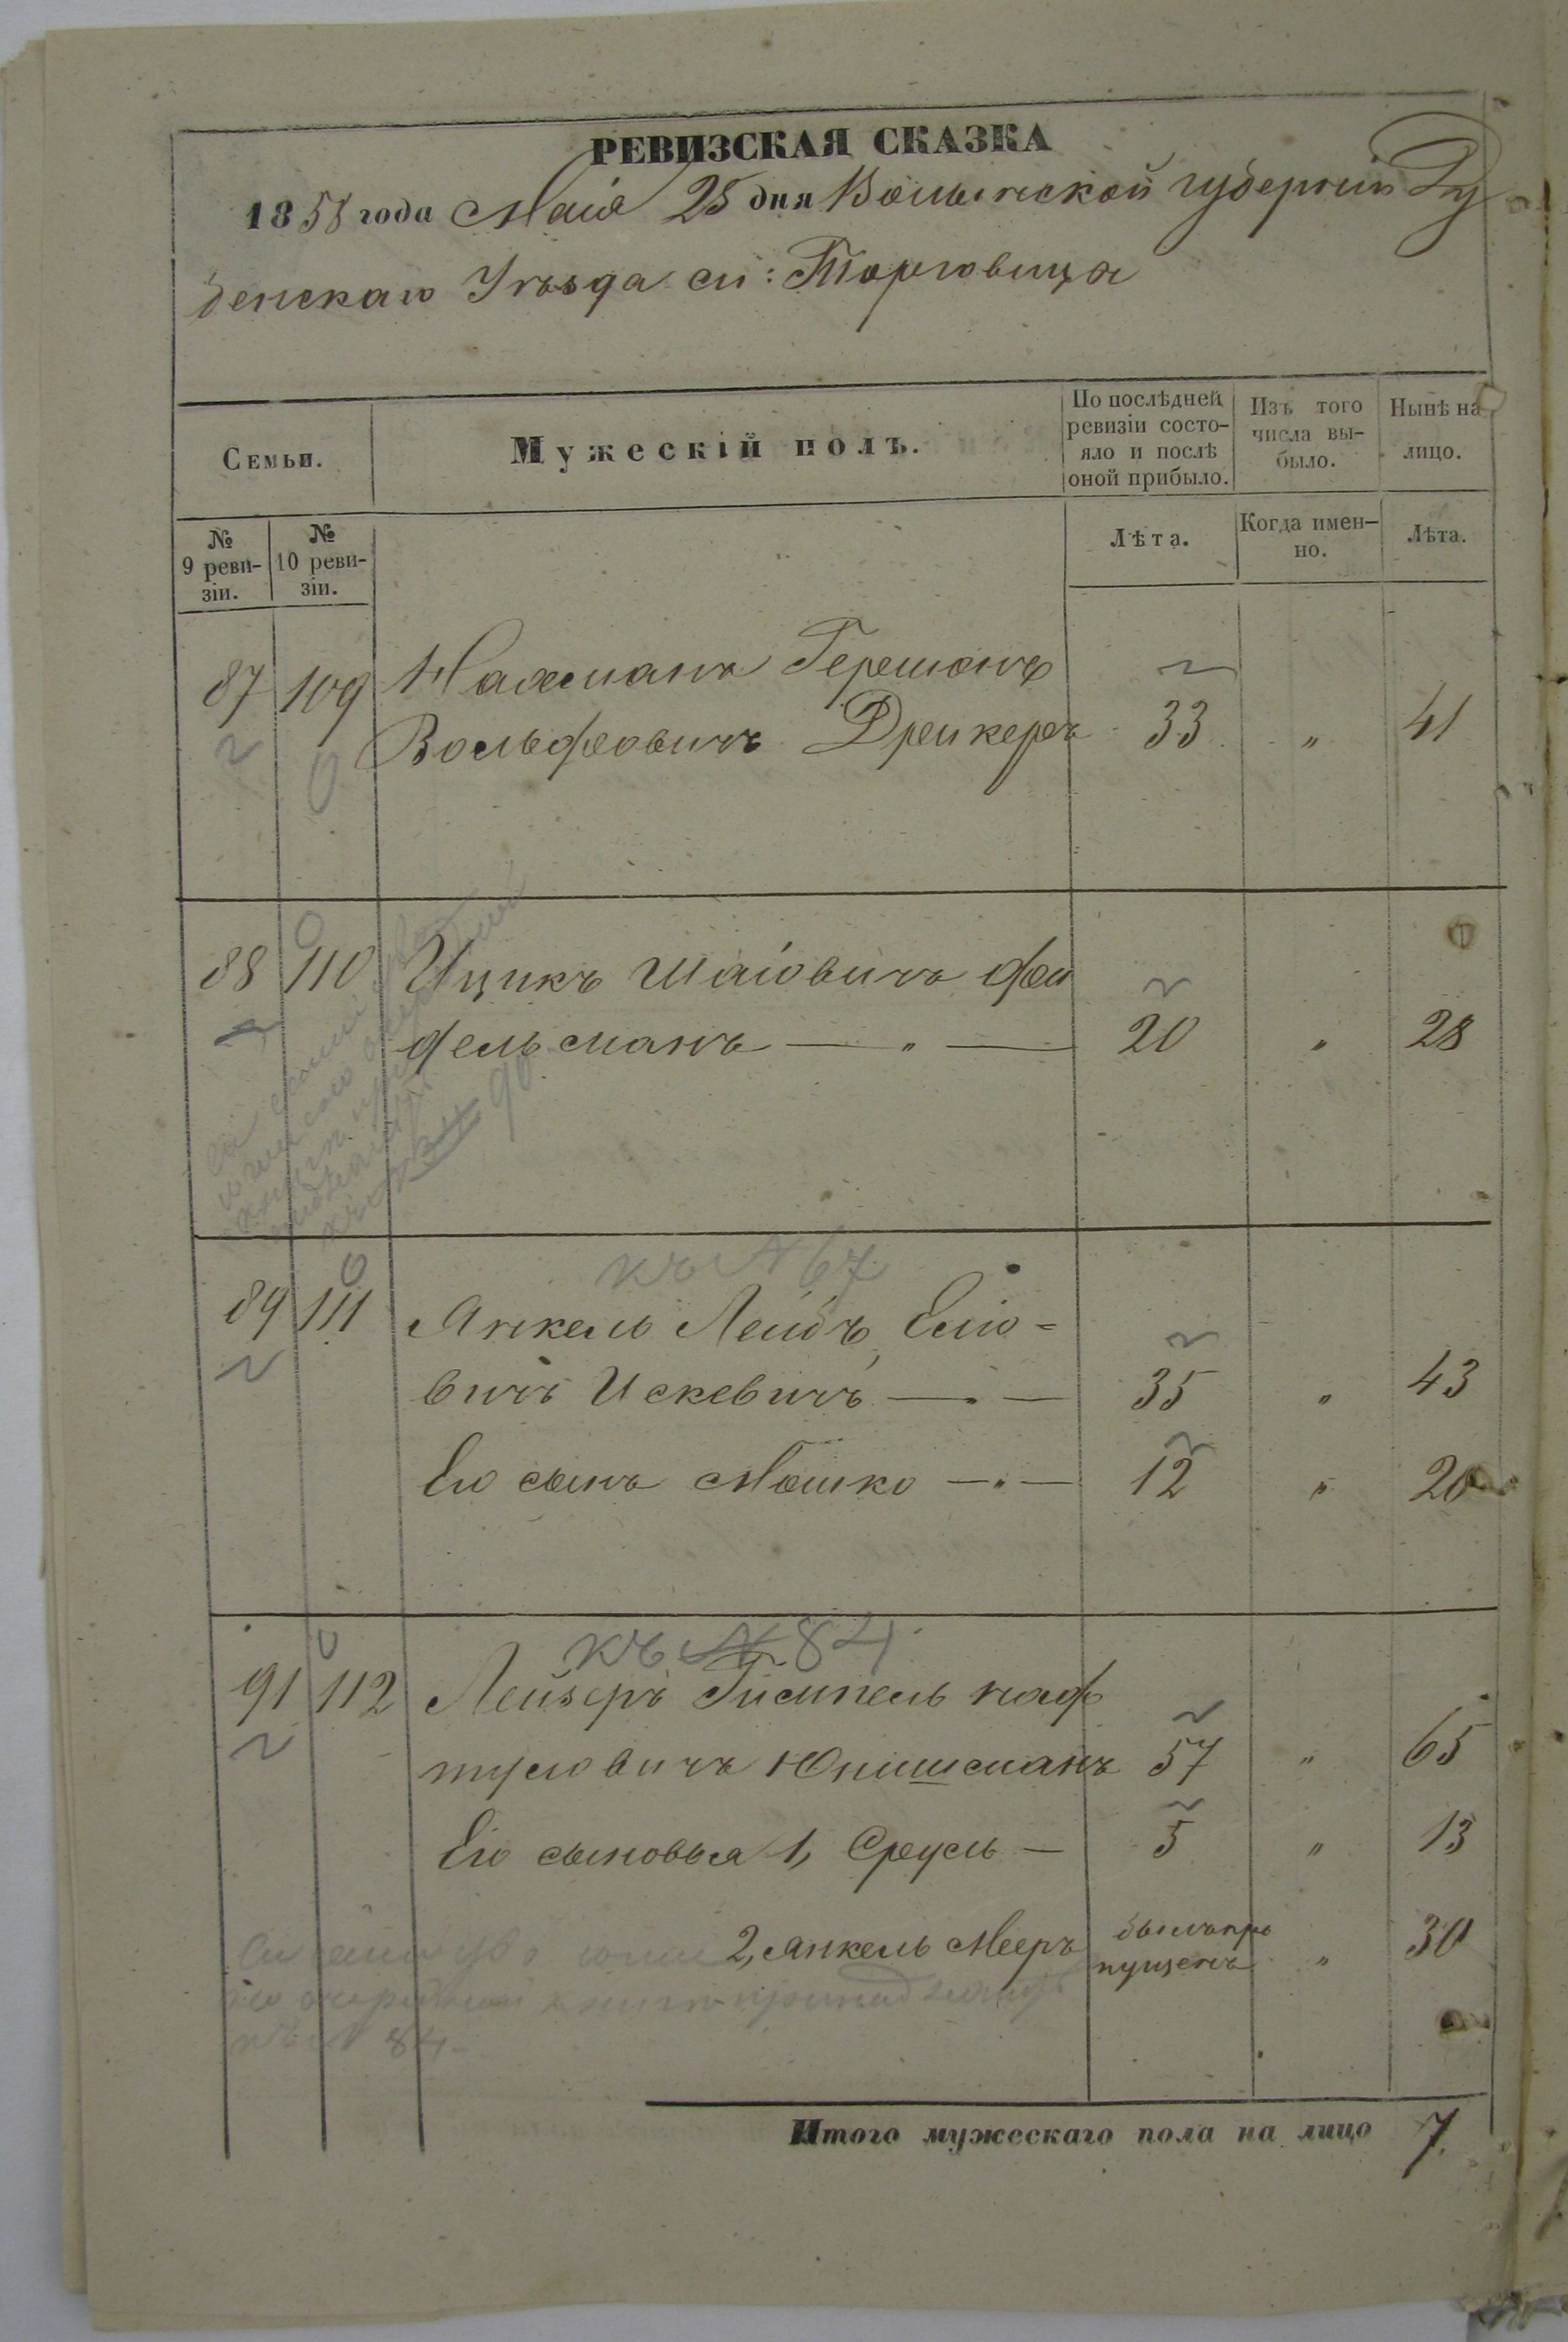 РЕВИЗСКАЯ СКАЗКА
1858 года Маія 25 дня Волынской губерніи Ду
бенскаго Уѣзда м: Торговица
Семьи.
Мужескій полъ.
По послѣдней
ревизіи состо-
яло и послѣ
оной прибыло.
Изъ того
числа вы-
было.
Нынѣ на
лицо.
№
9 реви-
зіи.
№
10 реви-
зіи.
Лѣта.
Когда имен-
но.
Лѣта.
87 109 Нахманъ Гершонъ
Вольфовичъ Дрикеръ 33 „ 41
88 110 Ицикъ Шаіовичъ Фей
дельманъ — „ — 20 „ 28
90
къ № 67
89 111 Янкель Лейбъ Еліо=
вичъ Искевичъ — „ — 35 „ 43
Его сынъ Мошко — „ — 12 „ 20
къ № 84
91 112 Лейзеръ Гимпель Наф
туловичъ 57 „ 65
Его сыновья 1, Сруль — 5 „ 13
2, Янкель Мееръ былъ про
пущенъ „ 30
къ № 84
Итого мужескаго пола на лицо 7.